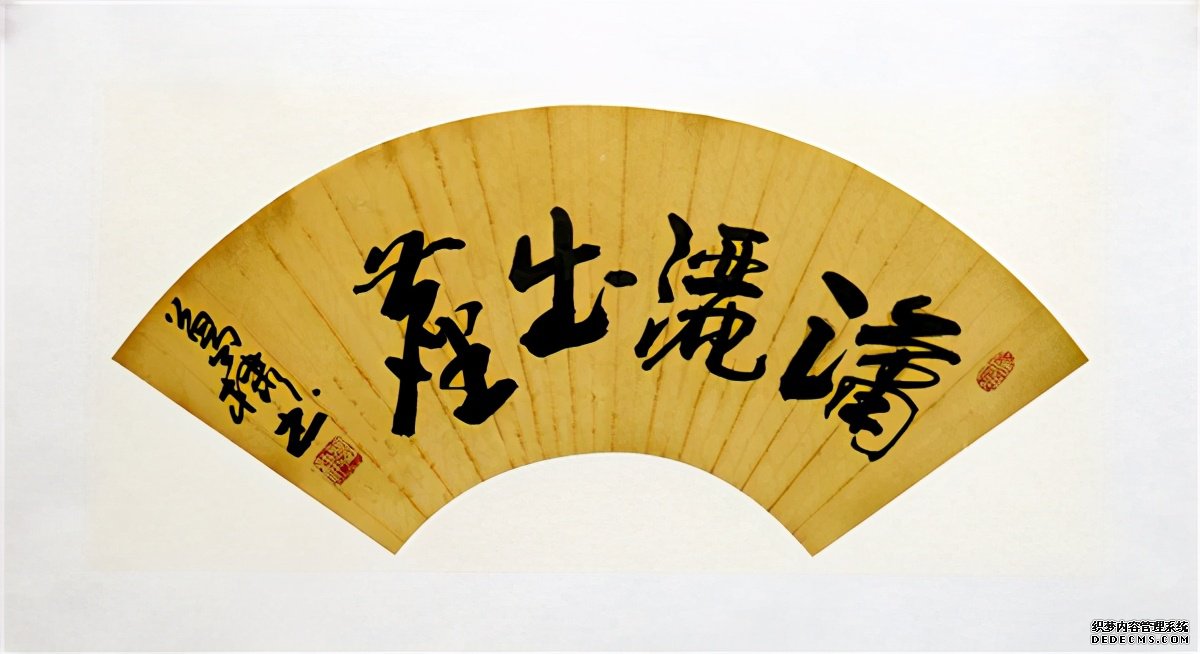 瀟灑出塵
织梦内容管理系统
DEDECMS.COM